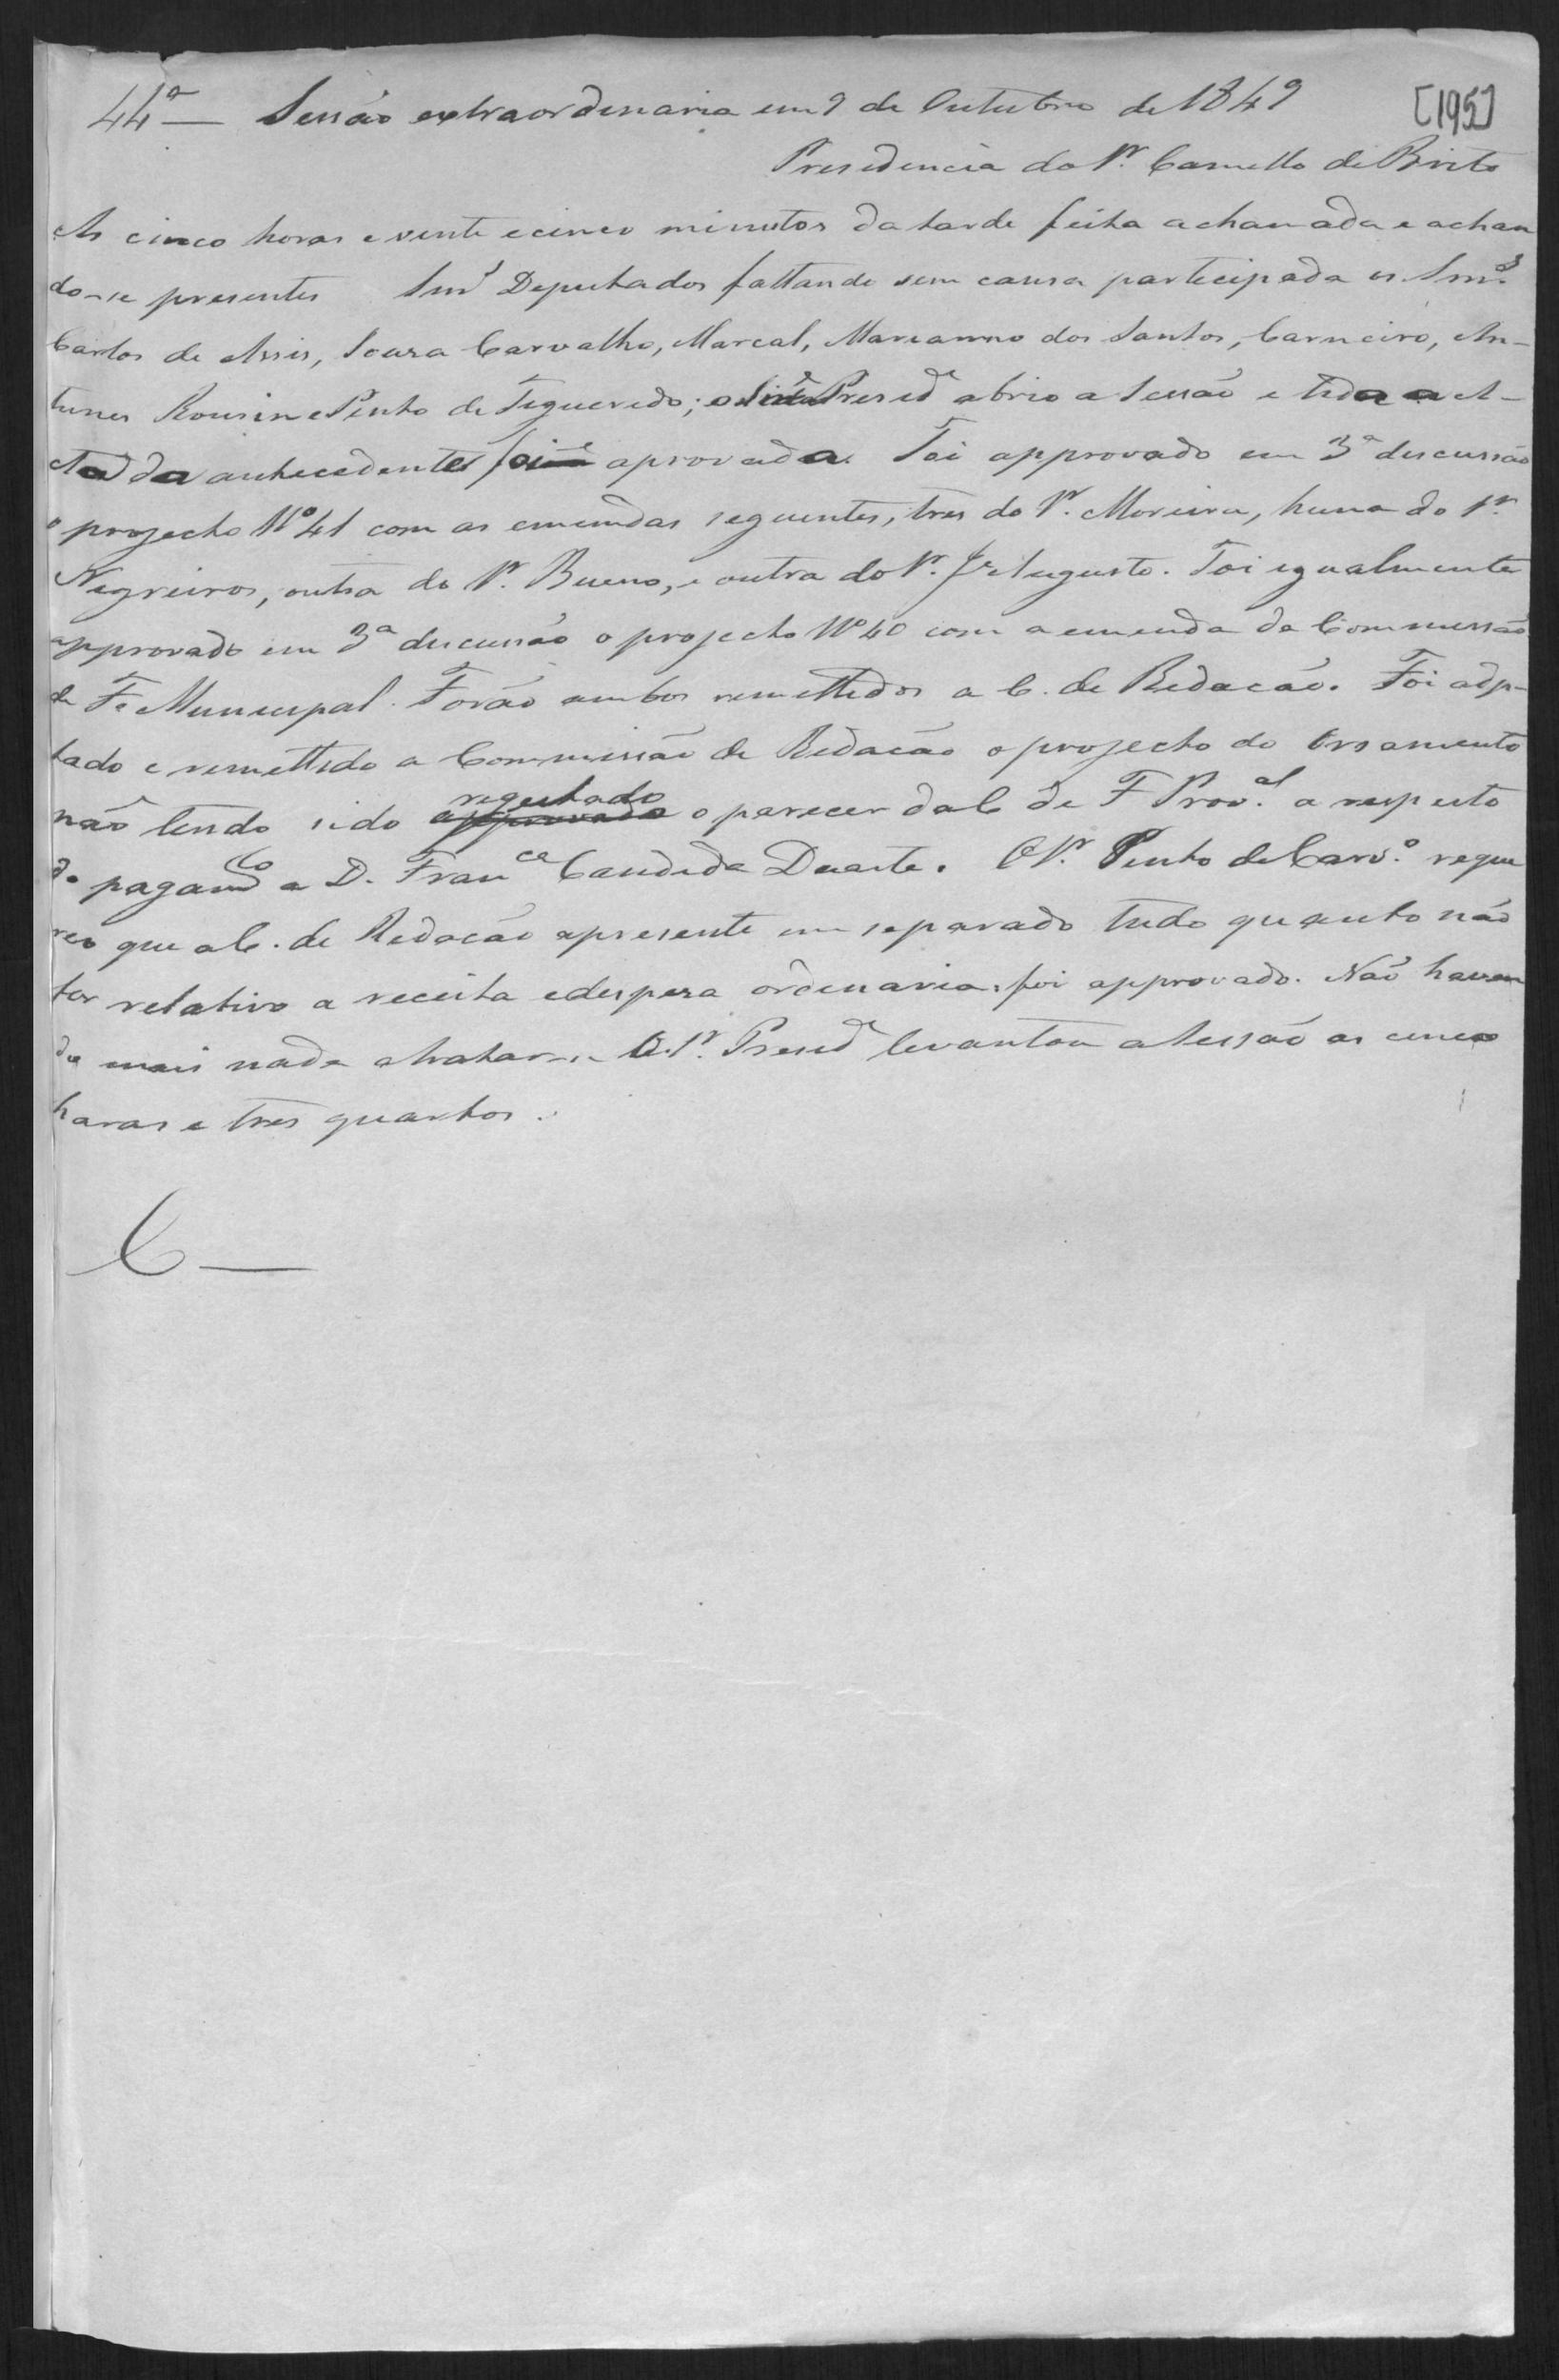 44ª — Sessão extraordinaria em 9 de Outubro de 1849 [195]
Presidencia do Sr. Camello de Brito
As cinco horas e vinte e cinco minutos da tarde feita a chamada e achan
do-se presentes Snrs Deputados faltando sem causa participada os Snrs.
Carlos de Assis, Souza Carvalho, Marcal, Marianno dos Santos, Carneiro, An-
tunes e Pinto de Figueredo; o Preside abrio a Sessão e lida a A-
cta da anthecedente foi aprovada. Foi approvado em 3ª discussão
o projecto Nº 41 com as emendas seguentes, tres do Sr. Moreira, huma do Sr.
Negreiros, outra do Sr. Bueno, e outra do Sr. Je Augusto. Foi igualmente
approvado em 3ª discussão o projecto Nº 40 com a emenda da Commissão
de Fa Municipal. Forão ambos remettidos a C. de Redacão. Foi adp-
tado e remettido a Commissão de Redacão o projecto do Orsamento
não tendo sido regeitado o parecer da C de F Prov.al a respeito
do pagamto a D. Franca Candida Duarte. O Sr. Pinto de Carvº. reque
reo que a C. de Redacão apresente em separado tudo quanto não
for relativo a receita e despeza ordenaria, foi approvado. Não haven
do mais nada a tratar-se O Sr. Preside levantou a Sessão as cinco
horas e tres quartos.
C —